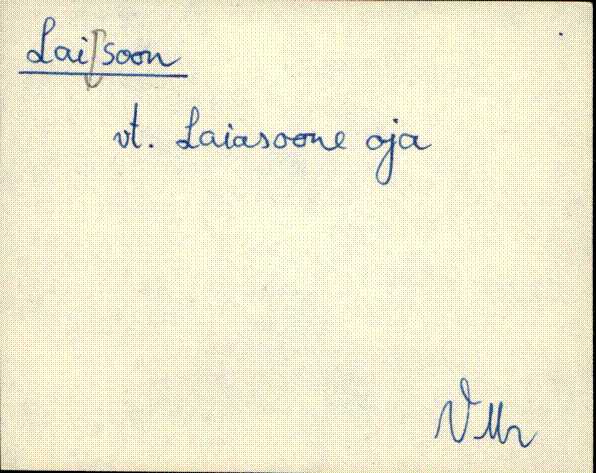 Lai[soon
vt. Laiasoone oja
VMr